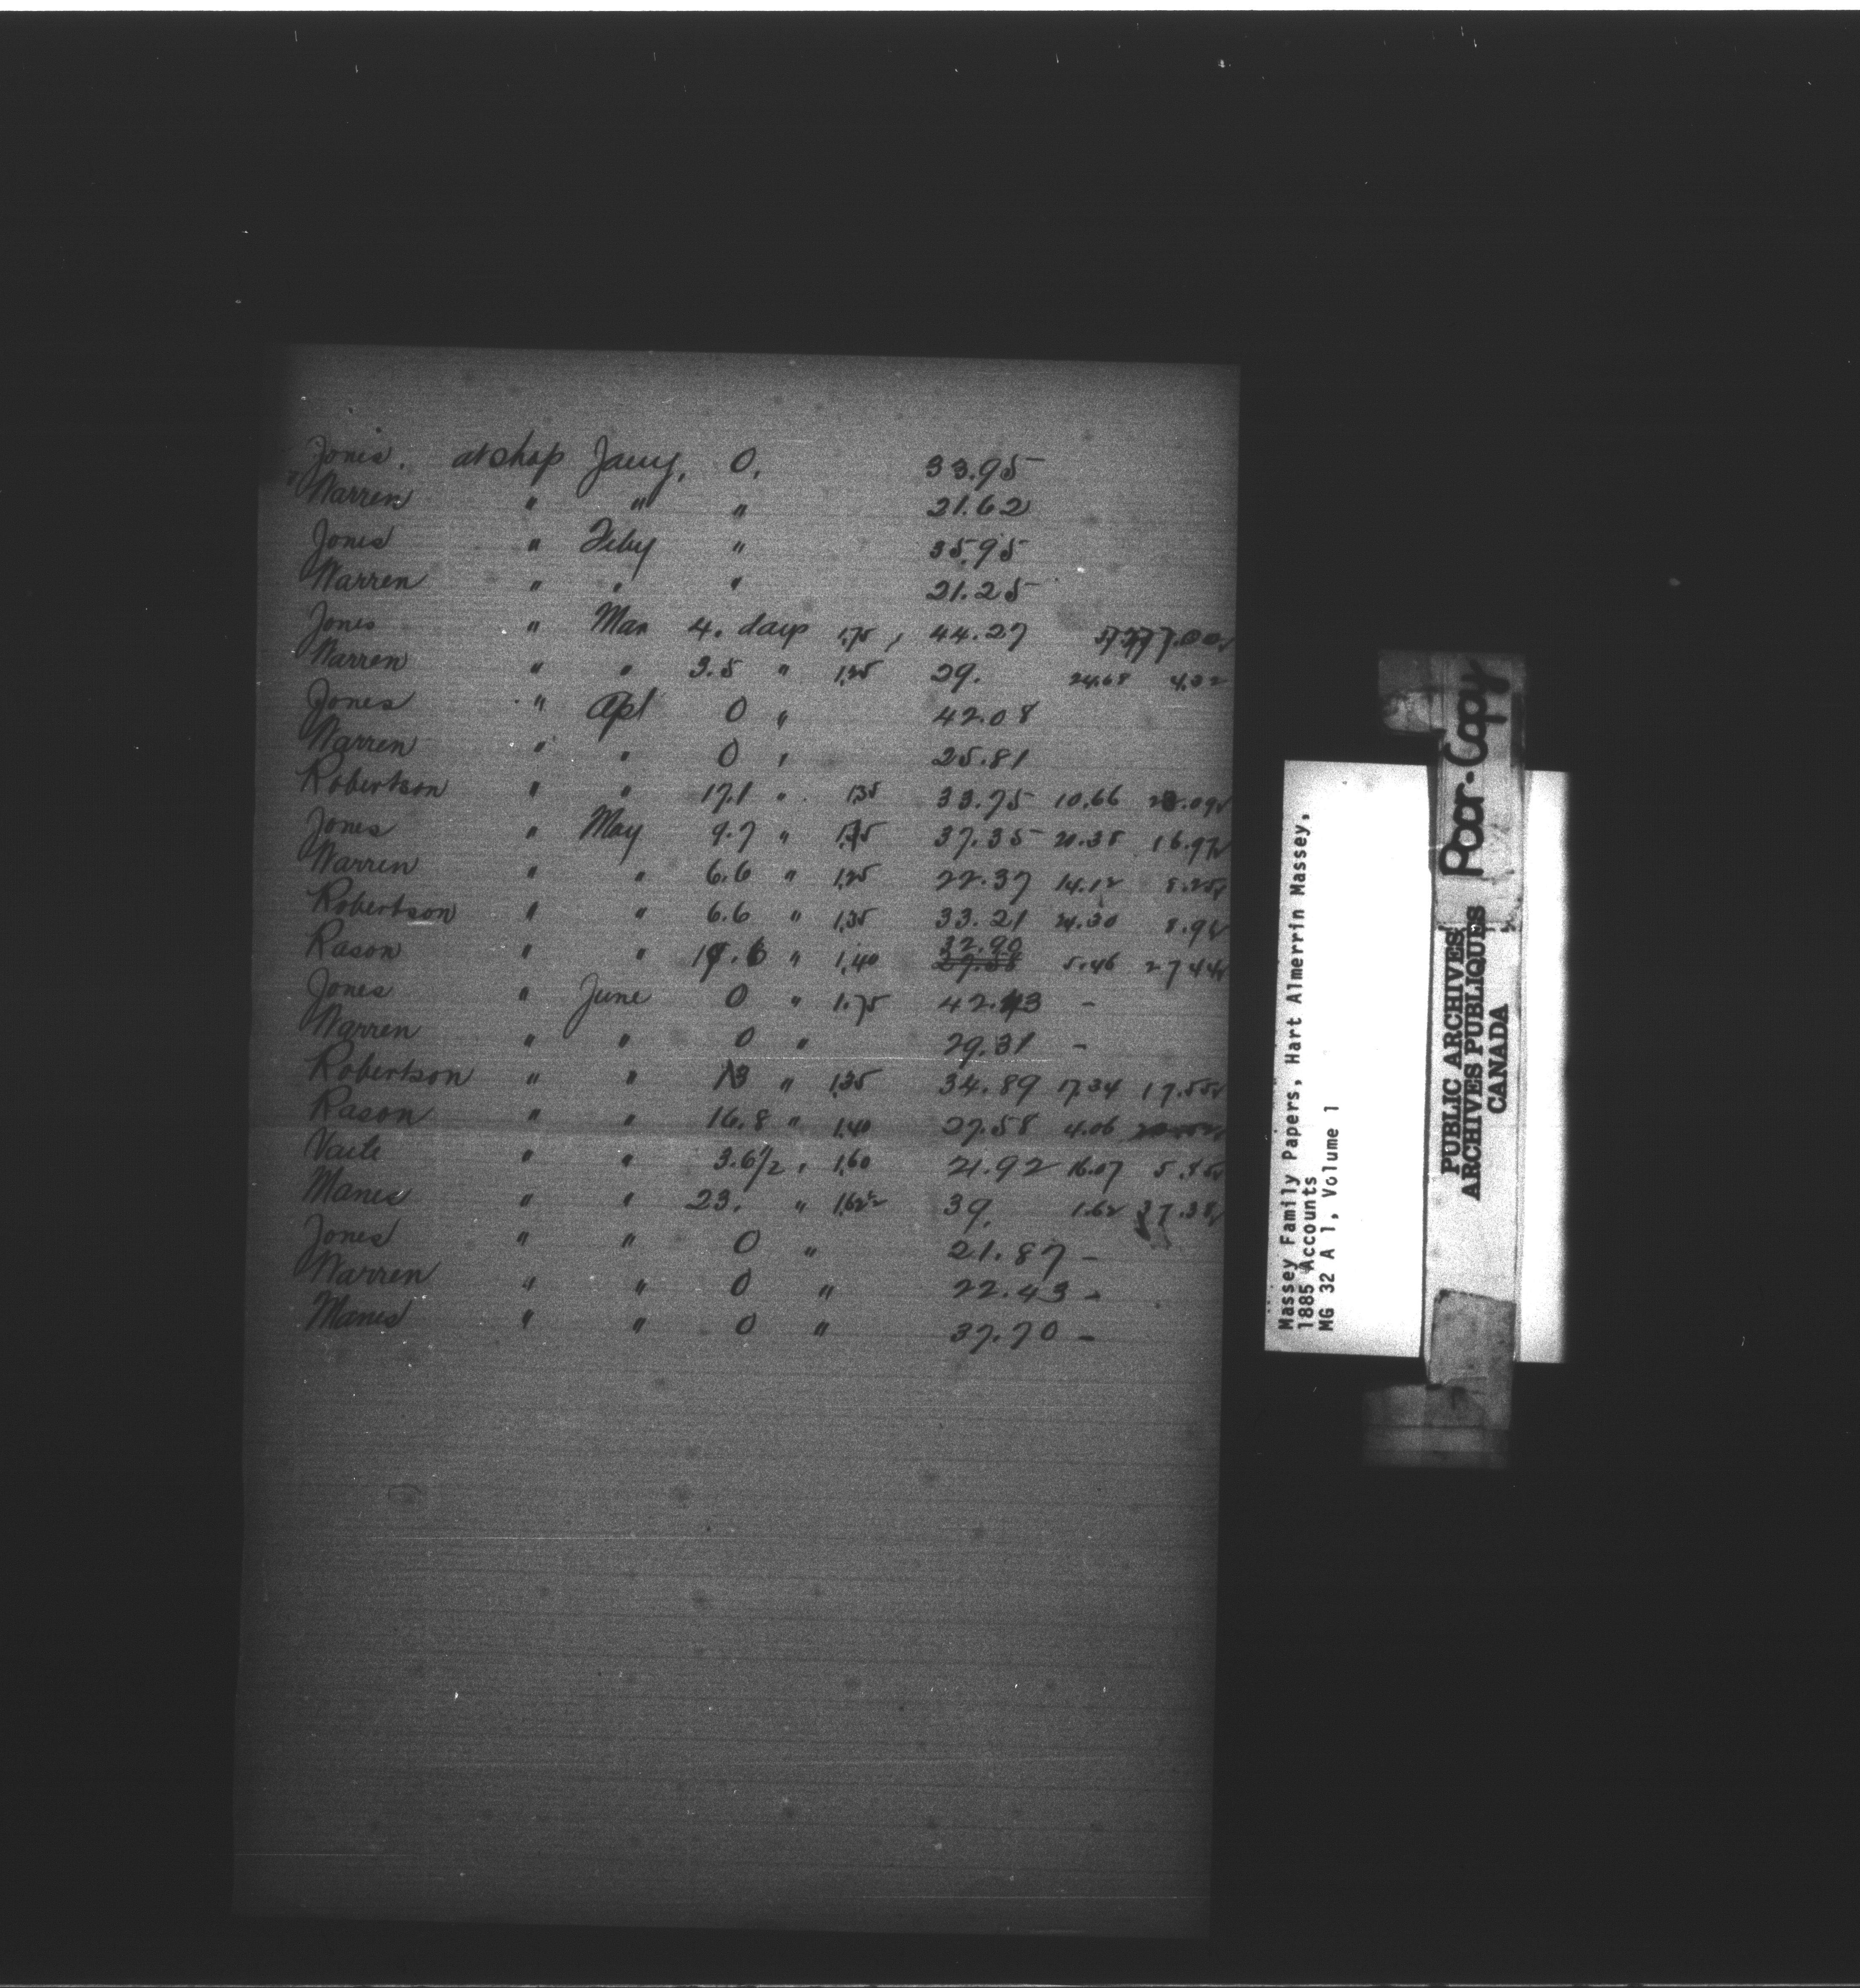 Jones. at shop Jany. 0. 33.95
Warren " " " 21.62
Jones " Feby " 35.95
Warren " " " 21.25
Jones " Mar 4. days 1.75, 44.27 7.00
Warren " " 3.5 " 1.25 29. 24.68 4.32
Jones " Apl 0 " 42.08
Warren " " 0 " 25.81
Robertson " " 17.1 " 1.35 33.75 10.66 23.09
Jones " May 9.7 " 1.75 37.35 20.38 16.97
Warren " " 6.6 " 1.25 22.37 14.12 8.25
Robertson " " 6.6 " 1.35 33.21 24.30 8.91
Rason " " 19.6 " 1.40 32.90 5.46 27.44
Jones " June 0 " 1.75 42.43 -
Warren " " 0 " 29.31 -
Robertson " " 13 " 1.35 34.89 17.34 17.55
Rason " " 16.8 " 1.40 27.58 4.06
Vaile " " 3.6½ " 1.60 21.92 16.07 5.85
Manes " " 23. " 1.62½ 39. 1.62 37.38
Jones " " 0 " 21.87 -
Warren " " 0 " 22.43 -
Manes " " 0 " 37.70 -
Massey Family Papers, Hart Almerrin Massey,
1885 Accounts
MG 32 A 1, Volume 1
Poor-Copy
PUBLIC ARCHIVES
ARCHIVES PUBLIQUES
CANADA